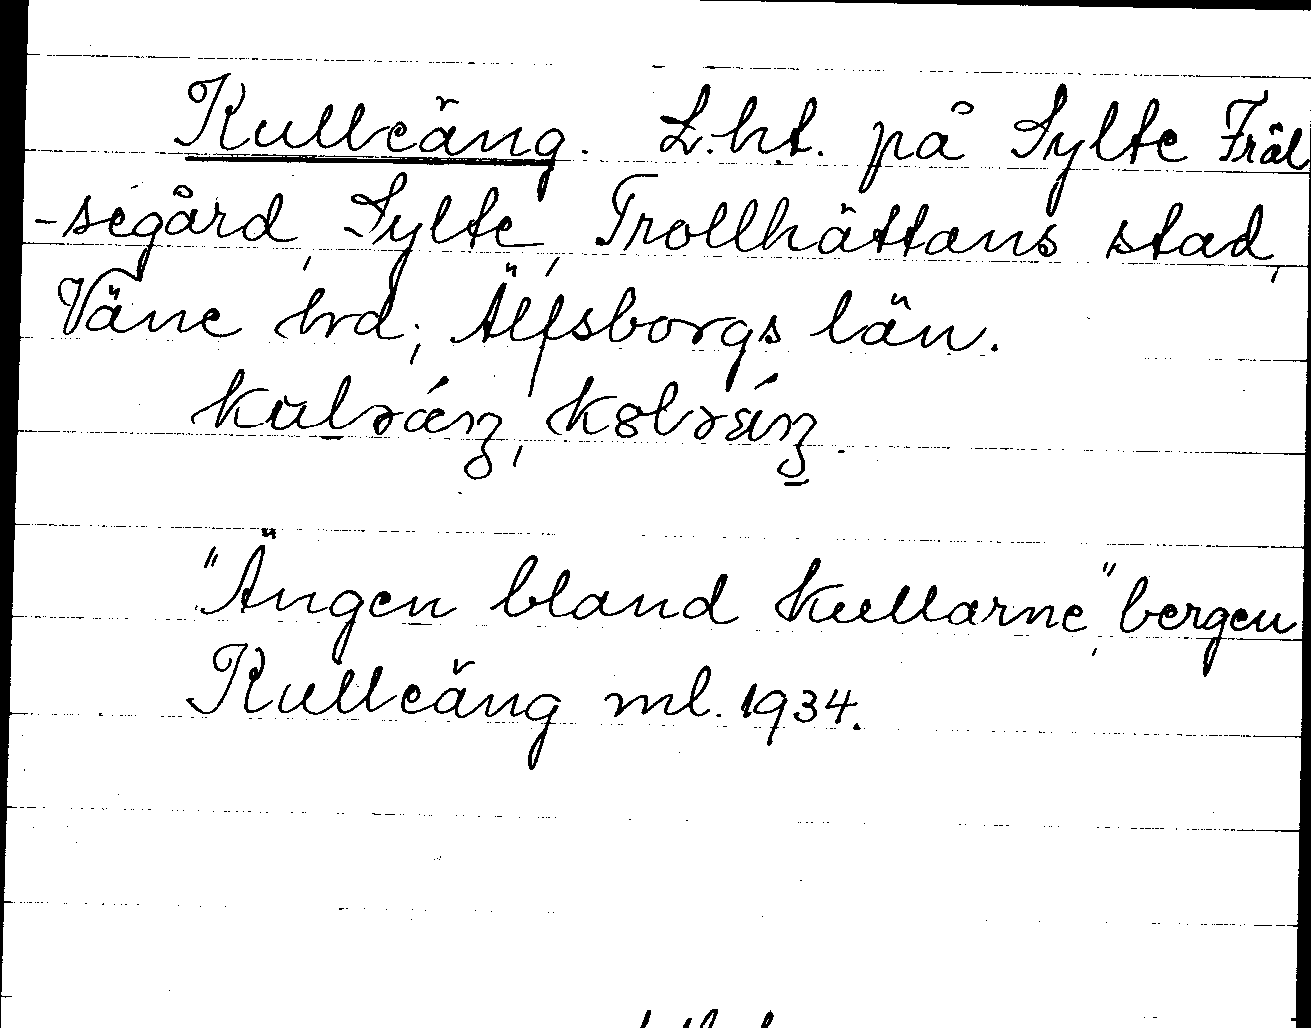 Kulleäng. L.h.t. på Sylte Fräl
-segård, Sylte, Trollhättans stad,
Väne hrd; Älfsborgs län.
"Ängen bland kullarne", bergen
Kulleäng ml. 1934.